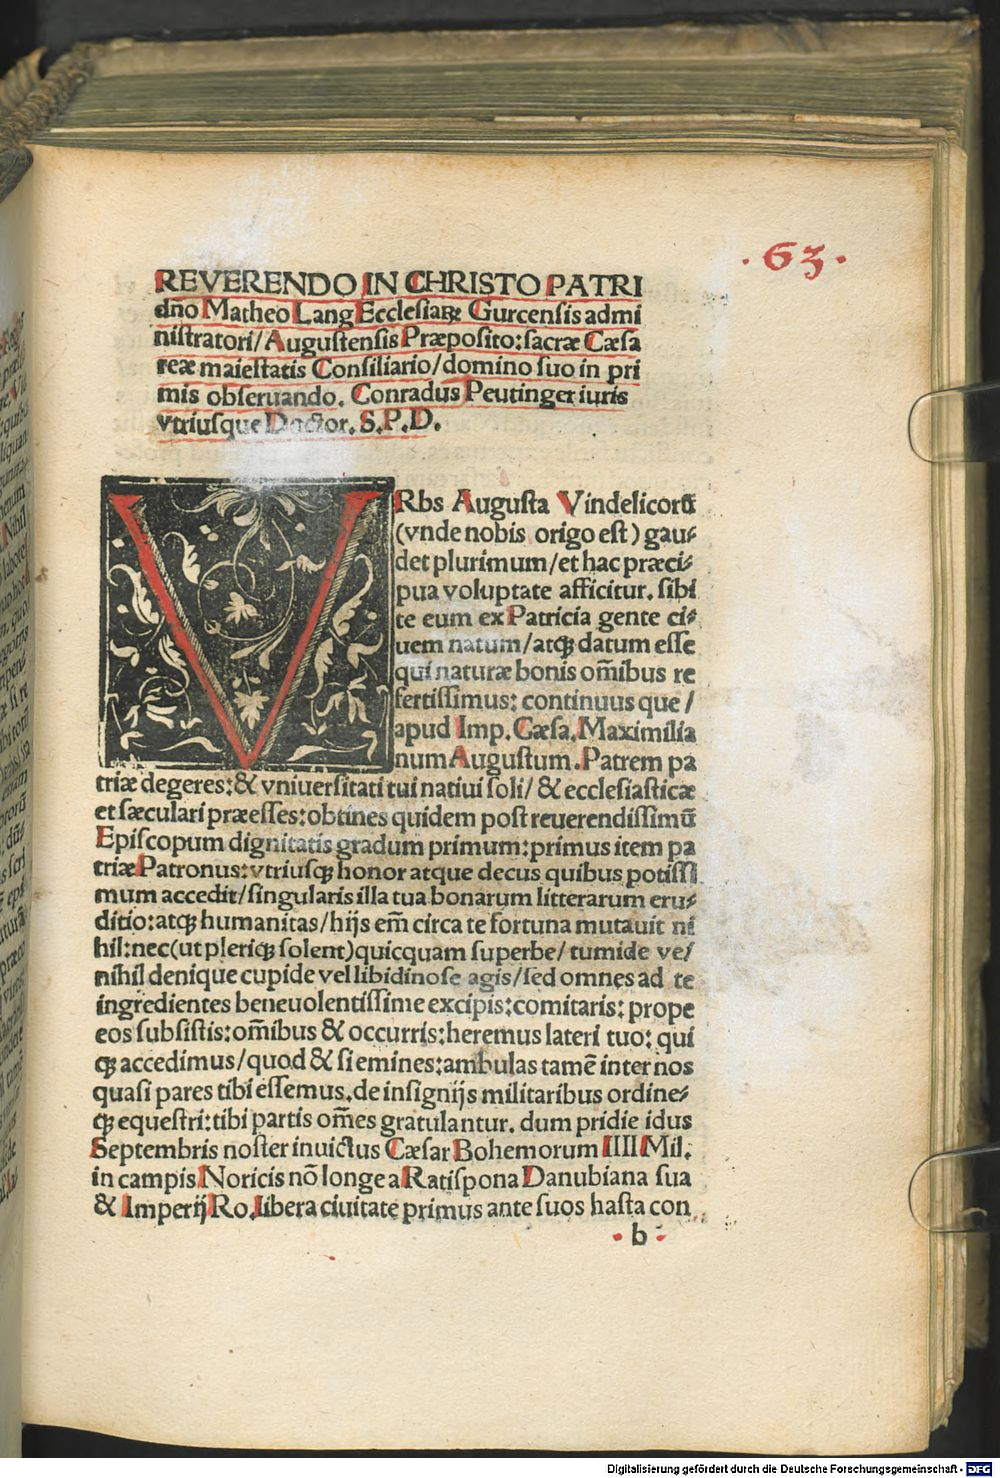 · 63 ·
REVERENDO IN CHRISTO PATRI
dño Matheo Lang Ecclesiaꝝ Gurcensis admi
nistratori/Augustensis Præposito: sacræ Cæsa
reæ maiestatis Consiliario/domino suo in pri
mis obseruando. Conradus Peutinger iuris
vtriusque Doctor. S.P.D.
VRbs Augusta Vindelicorũ
(vnde nobis origo est) gau⸗
det plurimum/et hac præci⸗
pua voluptate afficitur. sibi
te eum ex Patricia gente ci⸗
uem natum/atqꝫ datum esse
qui naturæ bonis om̃ibus re
fertissimus: continuus que/
apud Imp. Cæsa. Maximilia
num Augustum. Patrem pa
triæ degeres: & vniuersitati tui natiui soli/ & ecclesiasticæ
et sæculari præesses: obtines quidem post reuerendissimũ
Episcopum dignitatis gradum primum: primus item pa
triæ Patronus: vtriusqꝫ honor atque decus quibus potissi
mum accedit/singularis illa tua bonarum litterarum eru⸗
ditio: atqꝫ humanitas/hijs em̃ circa te fortuna mutauit ni
hil: nec (ut pleriqꝫ solent) quicquam superbe/ tumide ve/
nihil denique cupide vel libidinose agis/sed omnes ad te
ingredientes beneuolentissime excipis: comitaris: prope
eos subsistis: om̃ibus & occurris: heremus lateri tuo: qui
qꝫ accedimus/quod & si emines: ambulas tamẽ inter nos
quasi pares tibi essemus. de insignijs militaribus ordine⸗
qꝫ equestri: tibi partis om̃es gratulantur. dum pridie idus
Septembris noster inuictus Cæsar Bohemorum IIII Mil.
in campis Noricis nõ longe a Ratispona Danubiana sua
& Imperij Ro. libera ciuitate primus ante suos hasta con
· b ·
Digitalisierung gefördert durch die Deutsche Forschungsgemeinschaft - DFG